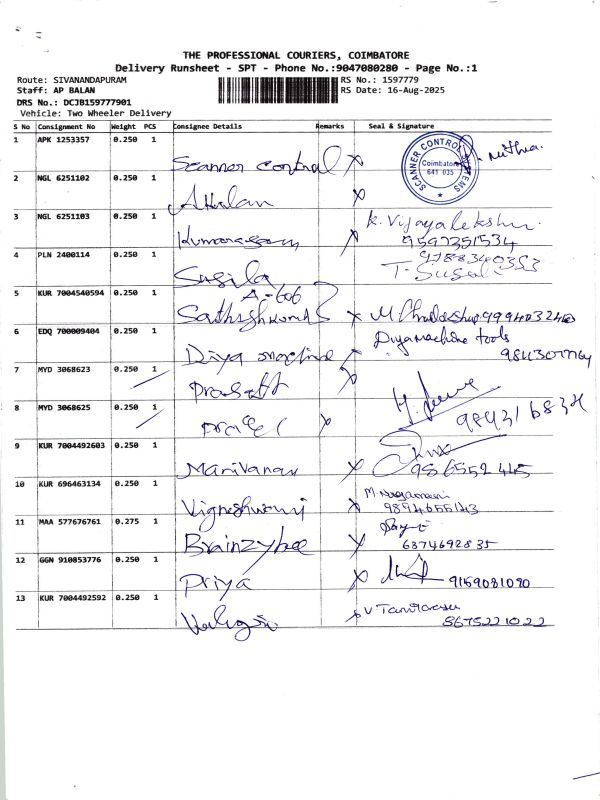 THE PROFESSIONAL COURIERS, COIMBATORE
Delivery Runsheet - SPT - Phone No.:9047080280 - Page No.:1
Route: SIVANANDAPURAM
Staff: AP BALAN
DRS No.: DCJB159777901
Vehicle: Two Wheeler Delivery
RS No.: 1597779
RS Date: 16-Aug-2025
S No Consignment No Weight PCS Consignee Details Remarks Seal & Signature
1 APK 1253357 0.250 1 Scanner control x
SCANNER CONTROL SYSTEMS
Coimbatore
641 035
2 NGL 6251102 0.250 1 x
3 NGL 6251103 0.250 1 x K. Vijayalekshmi
9597351534
4 PLN 2400114 0.250 1 Susila 9788340353
T. Susila
5 KUR 7004540594 0.250 1 A-606
Sathishkumar x 9994032460
6 EDQ 700009404 0.250 1 Diya machine Diya machine tools
7 MYD 3068623 0.250 1 x
8 MYD 3068625 0.250 1 x
9 KUR 7004492603 0.250 1 Marivanan x
10 KUR 696463134 0.250 1 x M. Nagamani
11 MAA 577676761 0.275 1 Brainzybee x
6374692835
12 GGN 910853776 0.250 1 Priya x 9159081090
13 KUR 7004492592 0.250 1 x
8675221022